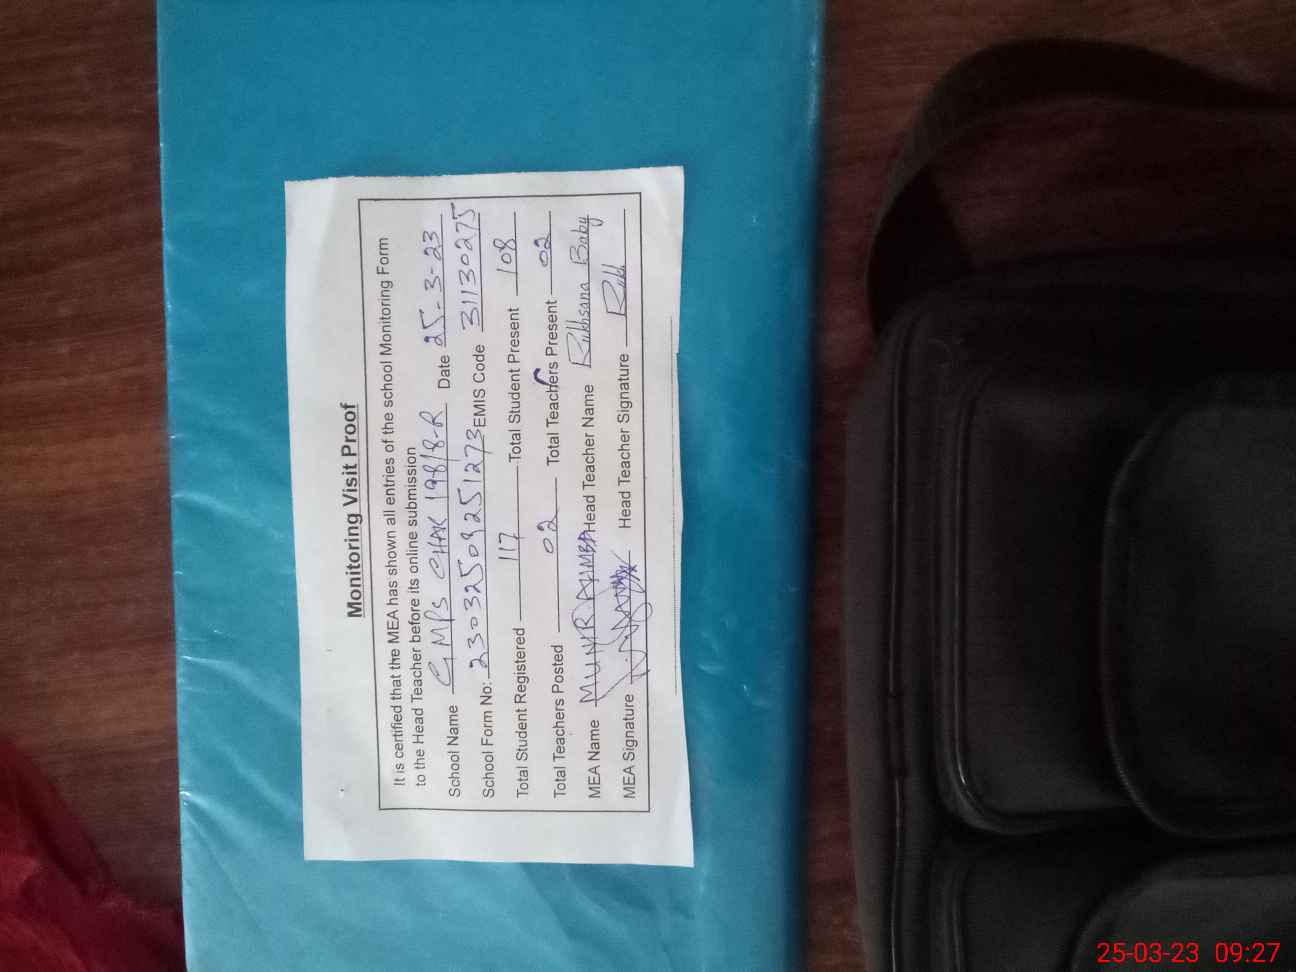 Monitoring Visit Proof
It is certified that the MEA has shown all entries of the school Monitoring Form
to the Head Teacher before its online submission
School Name GMPS CHAK 198/8-R Date 25-3-23
School Form No: 23032509251273 EMIS Code 31130275
Total Student Registered 117 Total Student Present 108
Total Teachers Posted 02 Total Teachers Present 02
MEA Name MUNIR AHMED Head Teacher Name Rukhsana Baby
MEA Signature Head Teacher Signature Rukh
25-03-23 09:27